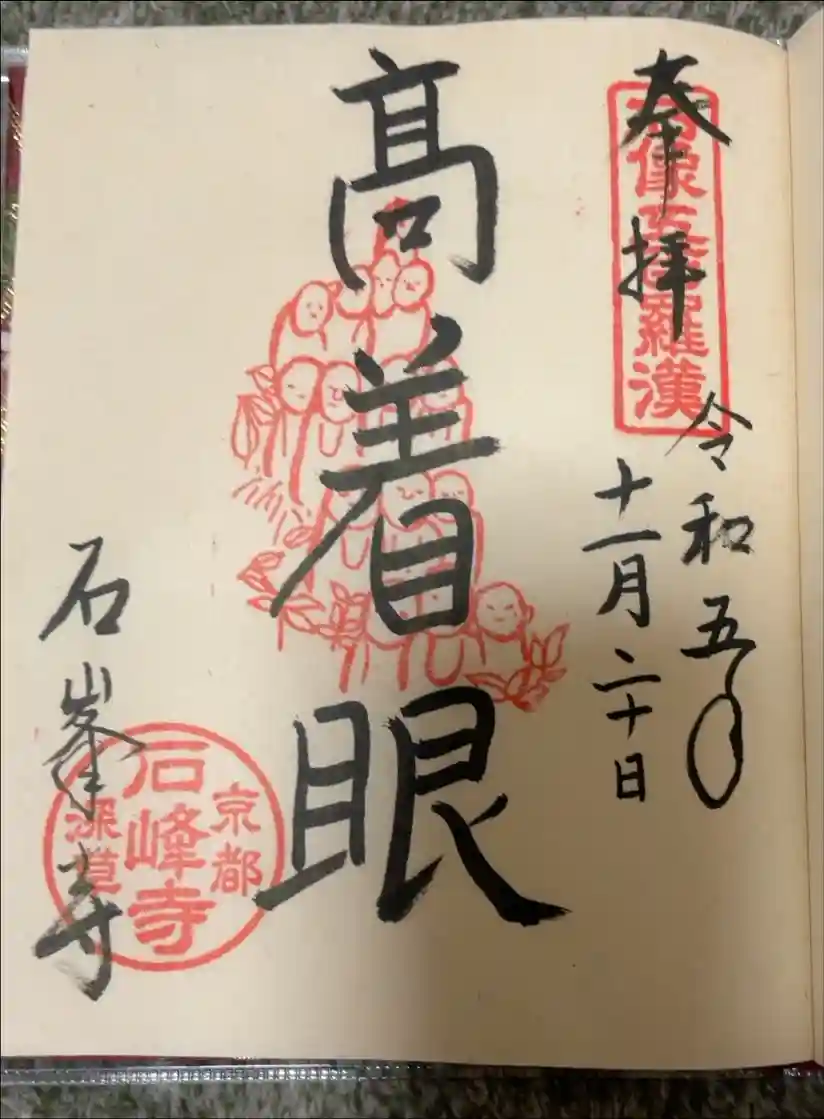 奉拝
石像五百羅漢
令和五年
十一月二十日
髙着眼
石峯寺
京都
石峰寺
深草